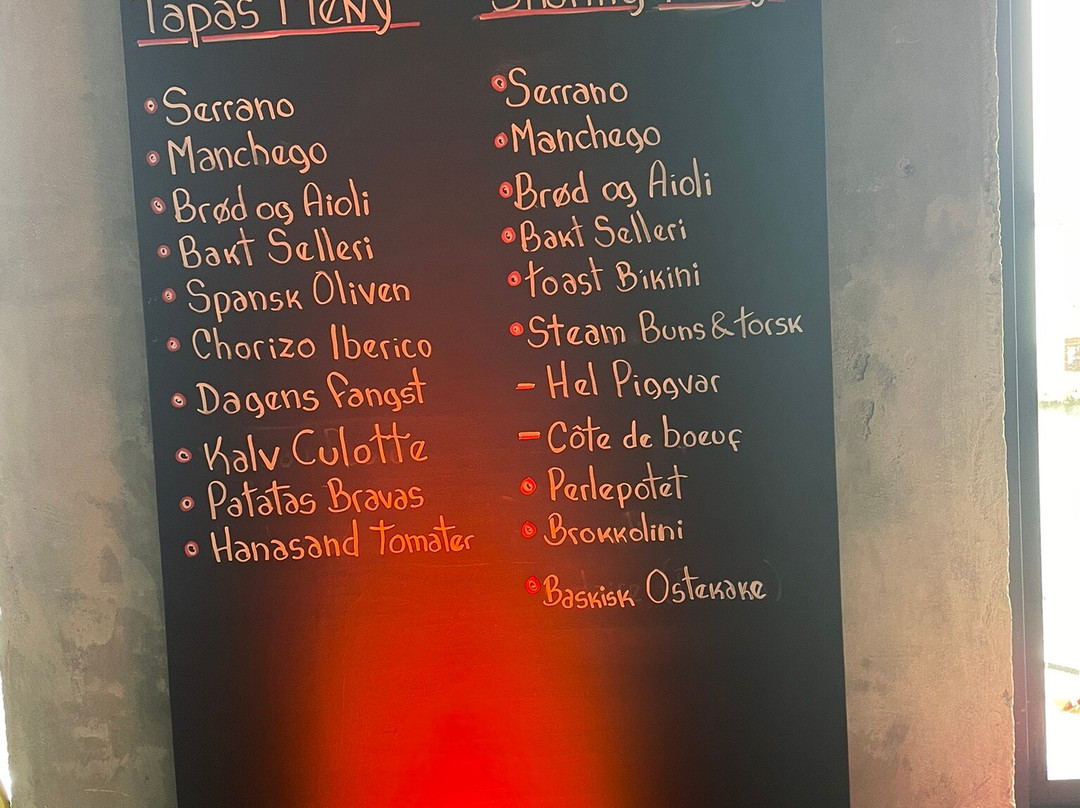 Tapas Meny
Serrano
Manchego
Brød og Aioli
Bakt Selleri
Spansk Oliven
Chorizo Iberico
Dagens fangst
Kalv Culotte
Patatas Bravas
Hanasand Tomater
Serrano
Manchego
Brød og Aioli
Bakt Selleri
Toast Bikini
Steam Buns & torsk
- Hel Piggvar
- Côte de boeuf
Perlepotet
Brokkolini
Baskisk Ostekake